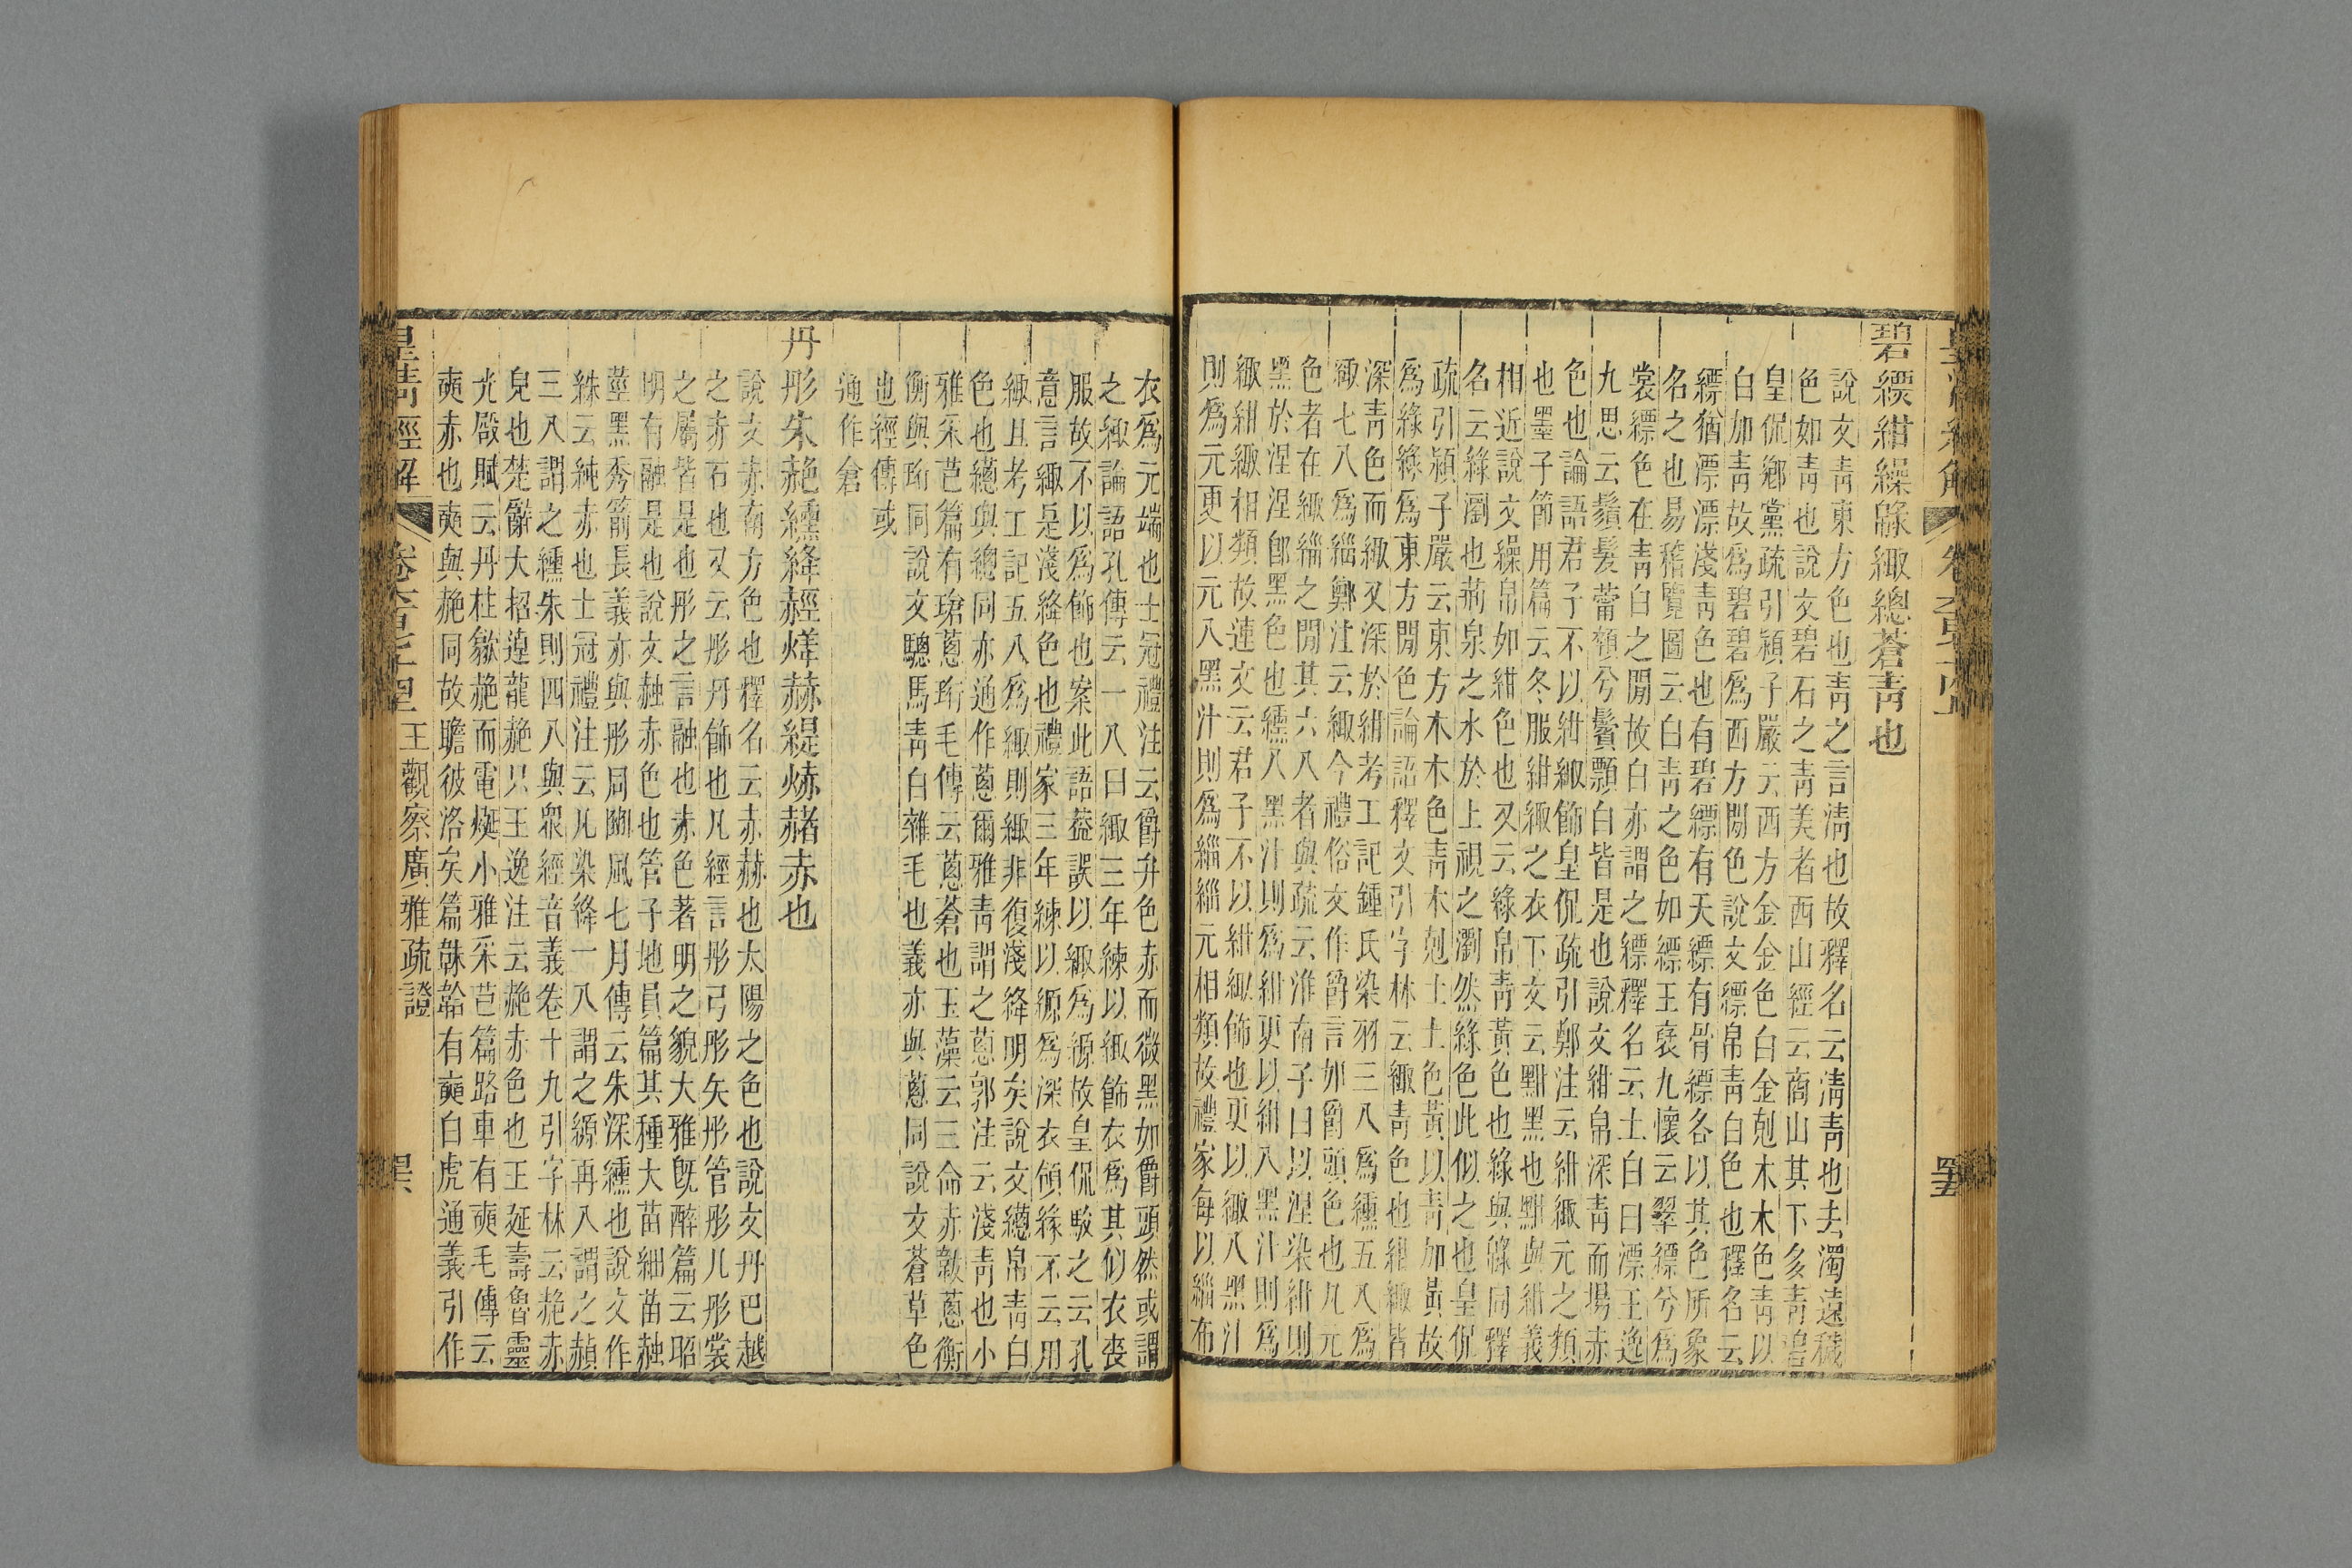 碧縹紺繰綠緅總蒼青也
說文青東方色也青之言清也故釋名云清青也去濁遠穢
色如青也說文碧石之青美者西山經云商山其下多青碧
皇侃鄉黨疏引穎子嚴云西方金金色白金剋木木色青以
白加青故爲碧碧爲西方閒色說文縹帛青白色也釋名云
縹猶漂漂淺青色也有碧縹有天縹有骨縹各以其色所象
名之也易稽覽圖云白青之色如縹王襃九懷云翠縹兮爲
裳縹色在青白之閒故白亦謂之縹釋名云土白曰漂王逸
九思云鬚髮蕾頓兮鬢顠白皆是也說文紺帛深青而揚赤
色也論語君子不以紺緅飾皇侃疏引鄭注云紺緅元之類
也墨子節用篇云冬服紺緅之衣下文云黚黑也黚與紺義
相近說文繰帛如紺色也又云綠帛青黃色也綠與綠同釋
名云綠瀏也荊泉之水於上視之瀏然綠色此似之也皇侃
疏引穎子嚴云東方木木色青木剋土土色黃以青加黃故
爲綠綠爲東方閒色論語釋文引字林云緅青色也紺緅皆
深青色而緅又深於紺考工記鍾氏染羽三入爲纁五入爲
緅七入爲緇鄭注云緅今禮俗文作爵言如爵頭色也凡元
色者在緅緇之閒其六入者與疏云淮南子曰以涅染紺則
黑於涅涅卽黑色也纁入黑汁則爲紺更以紺入黑汁則爲
緅紺緅相類故連文云君子不以紺緅飾也更以緅入黑汁
則爲元更以元入黑汁則爲緇緇元相類故禮家每以緇布
衣爲元端也士冠禮注云爵弁色赤而微黑如爵頭然或謂
之緅論語孔傳云一入曰緅三年練以緅飾衣爲其似衣喪
服故不以爲飾也案此語葢誤以緅爲縓故皇侃駮之云孔
意言緅是淺絳色也禮家三年練以縓爲深衣領緣不云用
緅且考工記五入爲緅則緅非復淺絳明矣說文繱帛青白
色也繱與總同亦通作蔥爾雅青謂之蔥郭注云淺青也小
雅采芑篇有瑲蔥珩毛傳云蔥蒼也玉藻云三命赤韍蔥衡
衡與珩同說文驄馬青白雜毛也義亦與蔥同說文蒼草色
也經傳或
通作倉
丹彤朱赩纁絳赬烊赫緹焃赭赤也
說文赤南方色也釋名云赤赫也太陽之色也說文丹巴越
之赤石也又云彤丹飾也凡經言彤弓彤矢彤管彤几彤裳
之屬皆是也彤之言融也赤色著明之貌大雅旣醉篇云昭
明有融是也說文赨赤色也管子地員篇其種大苗細苗赨
莖黑秀箭長義亦與彤同豳風七月傳云朱深纁也說文作
絑云純赤也士冠禮注云凡染絳一入謂之縓再入謂之赬
三入謂之纁朱則四入與眾經音義卷十九引字林云赩赤
皃也楚辭大招逴龍赩只王逸注云赩赤色也王延壽魯靈
光殿賦云丹柱歙赩而電烻小雅采芑篇路車有奭毛傳云
奭赤也奭與赩同故瞻彼洛矣篇韎韐有奭白虎通義引作
皇清經解
王觀察廣雅疏證